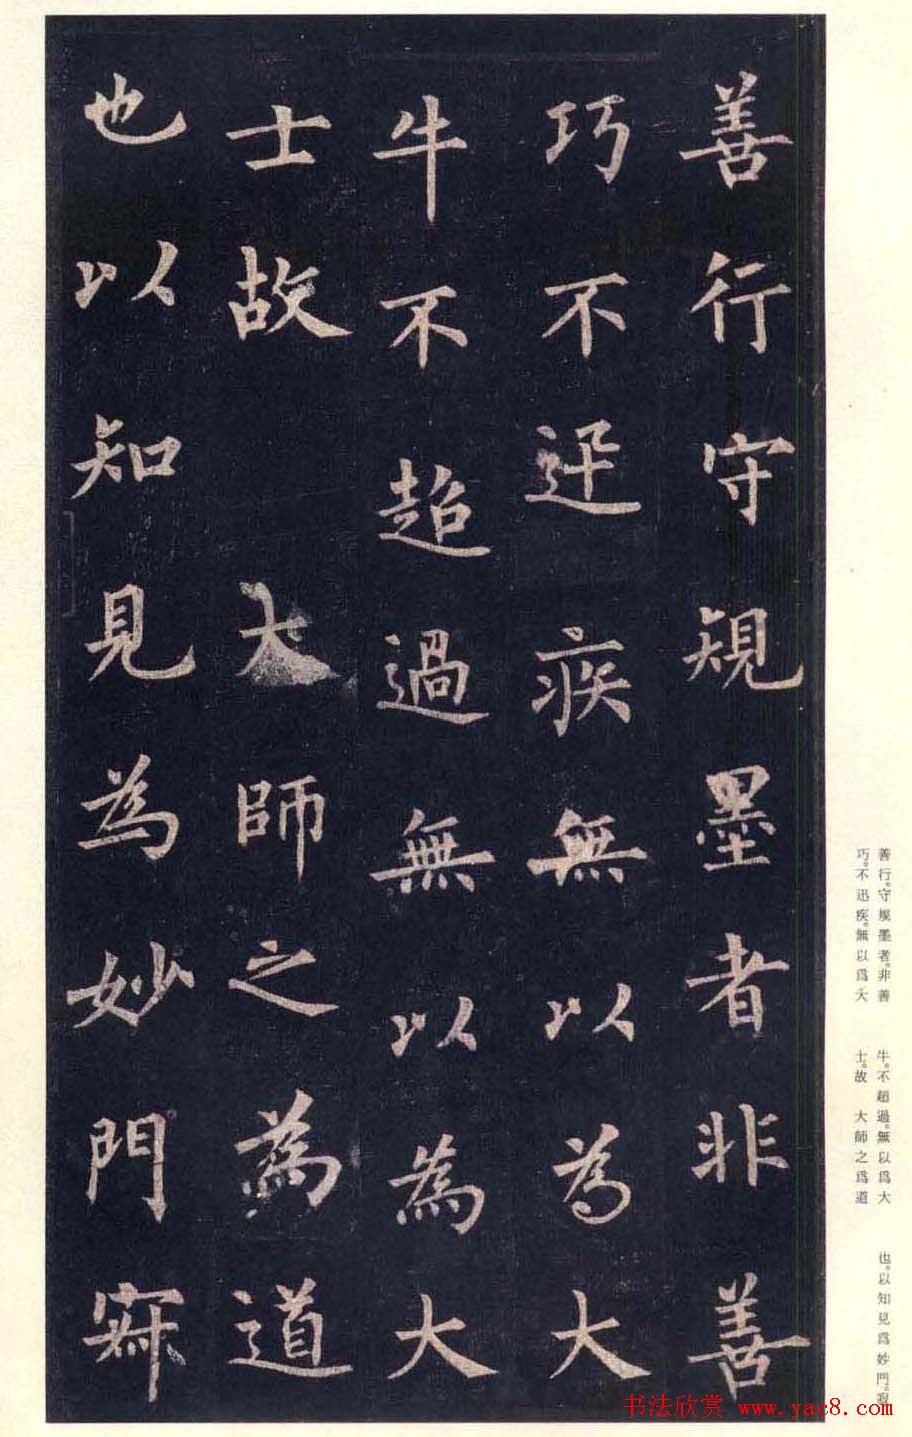 善行守規墨者非善
巧不迅疾無以為大
牛不超過無以為大
士故 大師之為道
也以知見為妙門寂
善行。守規墨者。非善
巧。不迅疾。無以爲大
牛。不超過。無以爲大
士。故 大師之爲道
也。以知見爲妙門。寂
书法欣赏 www.yac8.com